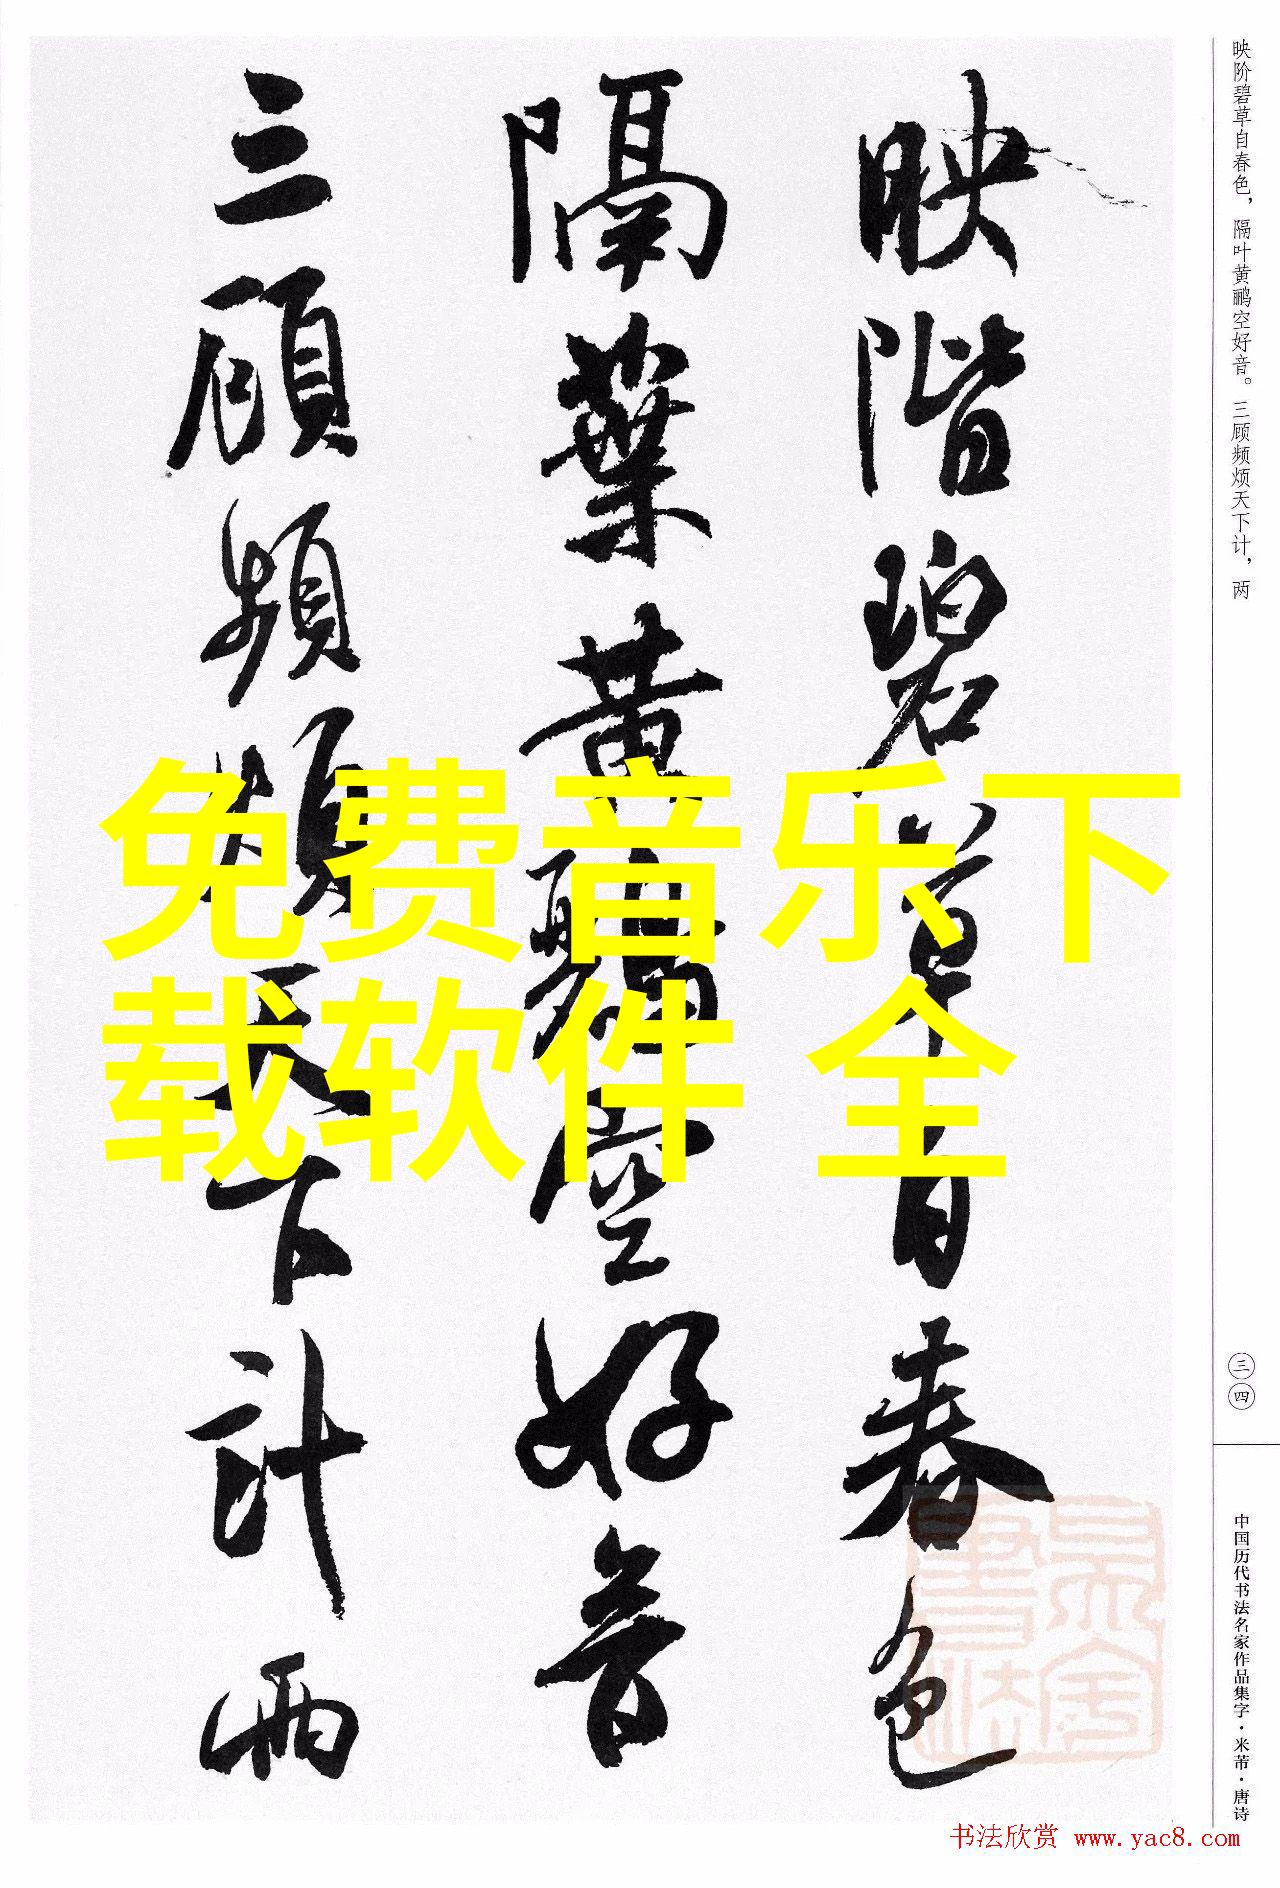 映階碧草自春色
隔葉黄鸝空好音
三顧頻煩天下計兩
免费音乐下
载软件 全
映阶碧草自春色，隔叶黄鹂空好音。三顾频烦天下计，两
三四
中国历代书法名家作品集字·米芾·唐诗
书法欣赏 www.yac8.com